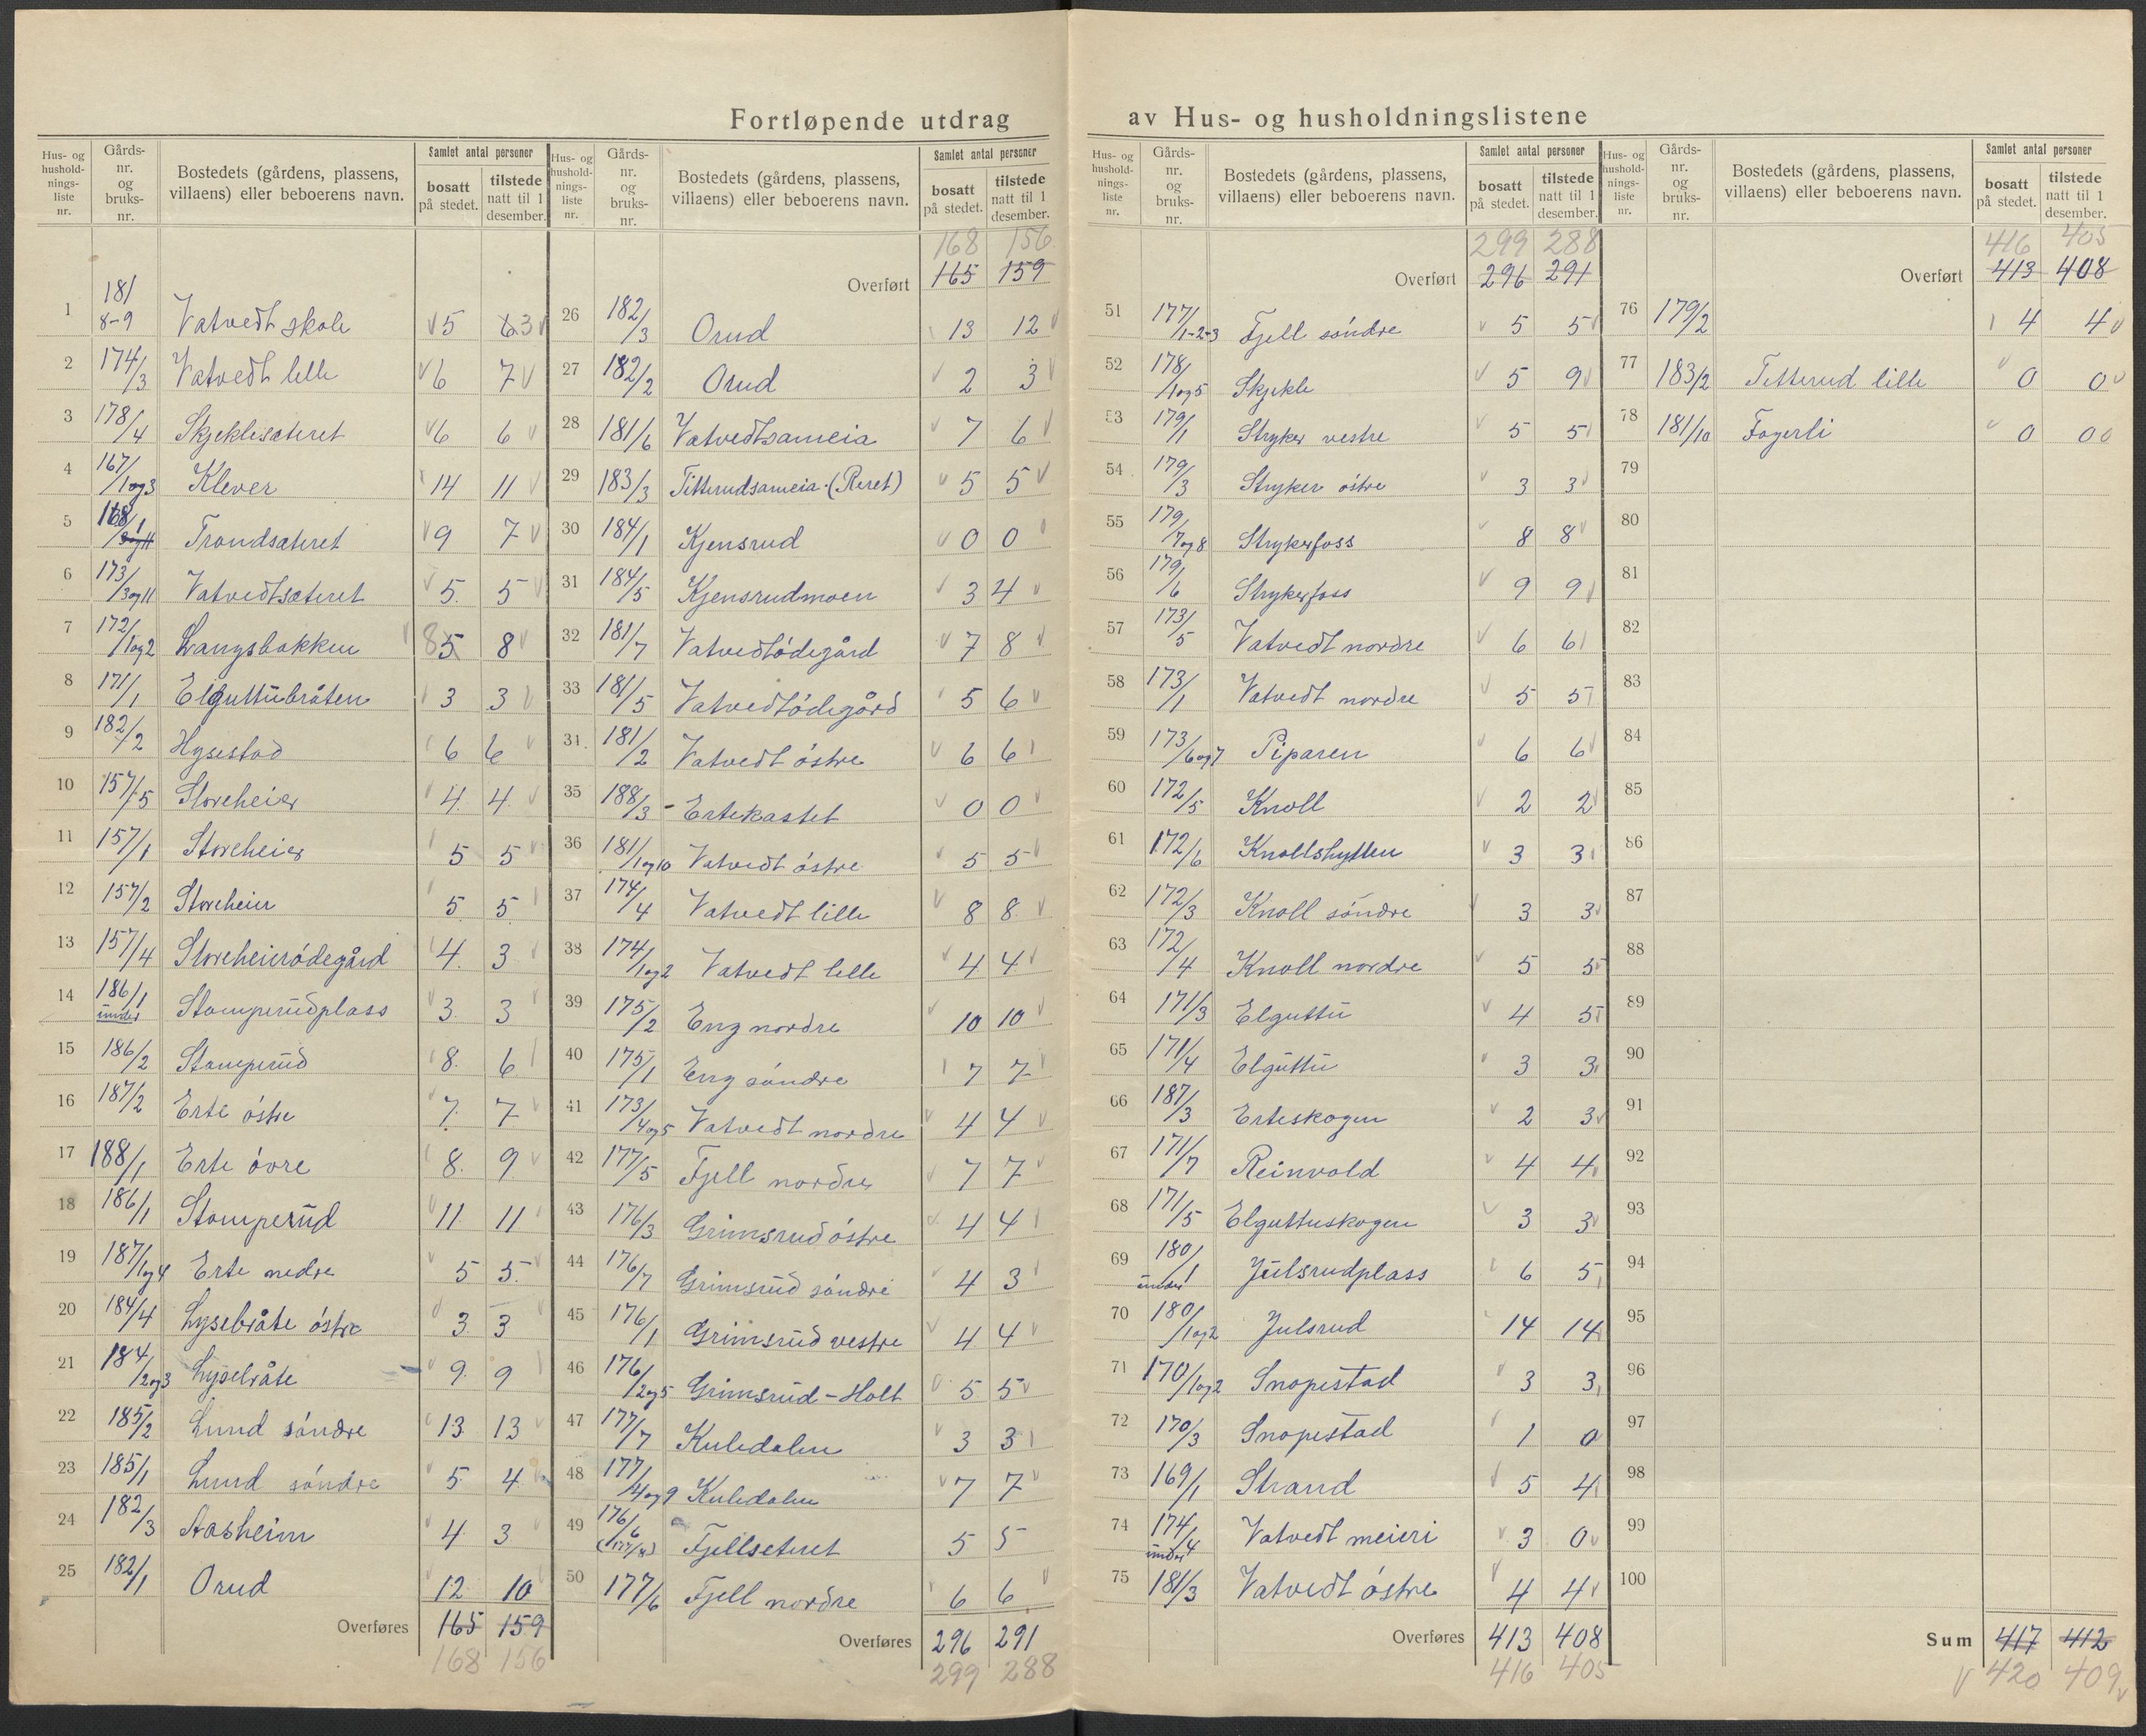 Fortløpende utdrag av Hus- og husholdningslistene
Hus- og husholdnings-liste nr. Gårds-nr. og bruks-nr. Bostedets (gårdens, plassens, villaens) eller beboerens navn. Samlet antal personer bosatt på stedet. tilstede natt til 1 desember.
1 181/8-9 Vatvedt skole 5 6 3
2 174/3 Vatvedt lille 6 7
3 178/4 Skjeklesæteret 6 6
4 167/1og3 Klever 14 11
5 168/1 Trondsæteret 9 7
6 173/3og11 Vatvedtsæteret 5 5
7 172/1og2 Langsbakken 8 5 8
8 171/1 Elguttubråten 3 3
9 182/2 Hysestad 6 6
10 157/5 Storeheier 4 4
11 157/1 Storeheier 5 5
12 157/2 Storeheier 5 5
13 157/4 Storeheierødegård 4 3
14 186/1 under Stomperudplass 3 3
15 186/2 Stomperud 8 6
16 187/2 Erte østre 7 7
17 188/1 Erte øvre 8 9
18 186/1 Stomperud 11 11
19 187/1og4 Erte nedre 5 5
20 184/4 Lysebråte østre 3 3
21 184/2og3 Lysebråte 9 9
22 185/2 Lund søndre 13 13
23 185/1 Lund søndre 5 4
24 182/3 Aasheim 4 3
25 182/1 Orud 12 10
Overføres 165 159
168 156
Hus- og husholdnings-liste nr. Gårds-nr. og bruks-nr. Bostedets (gårdens, plassens, villaens) eller beboerens navn. Samlet antal personer bosatt på stedet. tilstede natt til 1 desember.
168 156
Overført 165 159
26 182/3 Orud 13 12
27 182/2 Orud 2 3
28 181/6 Vatvedtsameia 7 6
29 183/3 Titterudsameia (Røret) 5 5
30 184/1 Kjensrud 0 0
31 184/5 Kjensrudmoen 3 4
32 181/7 Vatvedtødegård 7 8
33 181/5 Vatvedtødegård 5 6
34 181/2 Vatvedt østre 6 6
35 188/3 - Ertekastet 0 0
36 181/1og10 Vatvedt østre 5 5
37 174/4 Vatvedt lille 8 8
38 174/1og2 Vatvedt lille 4 4
39 175/2 Eng nordre 10 10
40 175/1 Eng søndre 7 7
41 173/4og5 Vatvedt nordre 4 4
42 177/5 Fjell nordre 7 7
43 176/3 Grimsrud østre 4 4
44 176/7 Grimsrud søndre 4 3
45 176/1 Grimsrud vestre 4 4
46 176/2og5 Grimsrud - Holt 5 5
47 177/7 Kuledalen 3 3
48 177/4og9 Kuledalen 7 7
49 176/6 Fjellseteret 5 5
50 177/6 Fjell nordre 6 6
Overføres 296 291
299 288
Hus- og husholdnings-liste nr. Gårds-nr. og bruks-nr. Bostedets (gårdens, plassens, villaens) eller beboerens navn. Samlet antal personer bosatt på stedet. tilstede natt til 1 desember.
299 288
Overført 296 291
51 177/1-2-3 Fjell søndre 5 5
52 178/1og5 Skjekle 5 9
53 179/1 Stryker vestre 5 5
54 179/3 Stryker østre 3 3
55 179/7og8 Strykerfoss 8 8
56 179/6 Strykerfoss 9 9
57 173/5 Vatvedt nordre 6 6
58 173/1 Vatvedt nordre 5 5
59 173/6og7 Piparen 6 6
60 172/5 Knoll 2 2
61 172/6 Knollshytten 3 3
62 172/3 Knoll søndre 3 3
63 172/4 Knoll nordre 5 5
64 171/3 Elguttu 4 5
65 171/4 Elguttu 3 3
66 187/3 Erteskogen 2 3
67 171/7 Reinvold 4 4
68 171/5 Elguttuskogen 3 3
69 180/1 under Julsrudplass 6 5
70 180/1og2 Julsrud 14 14
71 170/1og2 Snopestad 3 3
72 170/3 Snopestad 1 0
73 169/1 Strand 5 4
74 174/4 under Vatvedt meieri 3 0
75 181/3 Vatvedt østre 4 4
Overføres 413 408
416 405
Hus- og husholdnings-liste nr. Gårds-nr. og bruks-nr. Bostedets (gårdens, plassens, villaens) eller beboerens navn. Samlet antal personer bosatt på stedet. tilstede natt til 1 desember.
416 405
Overført 413 408
76 179/2 4 4
77 183/2 Titterud lille 0 0
78 181/10 Fagerli 0 0
79
80
81
82
83
84
85
86
87
88
89
90
91
92
93
94
95
96
97
98
99
100
Sum 417 412
420 409